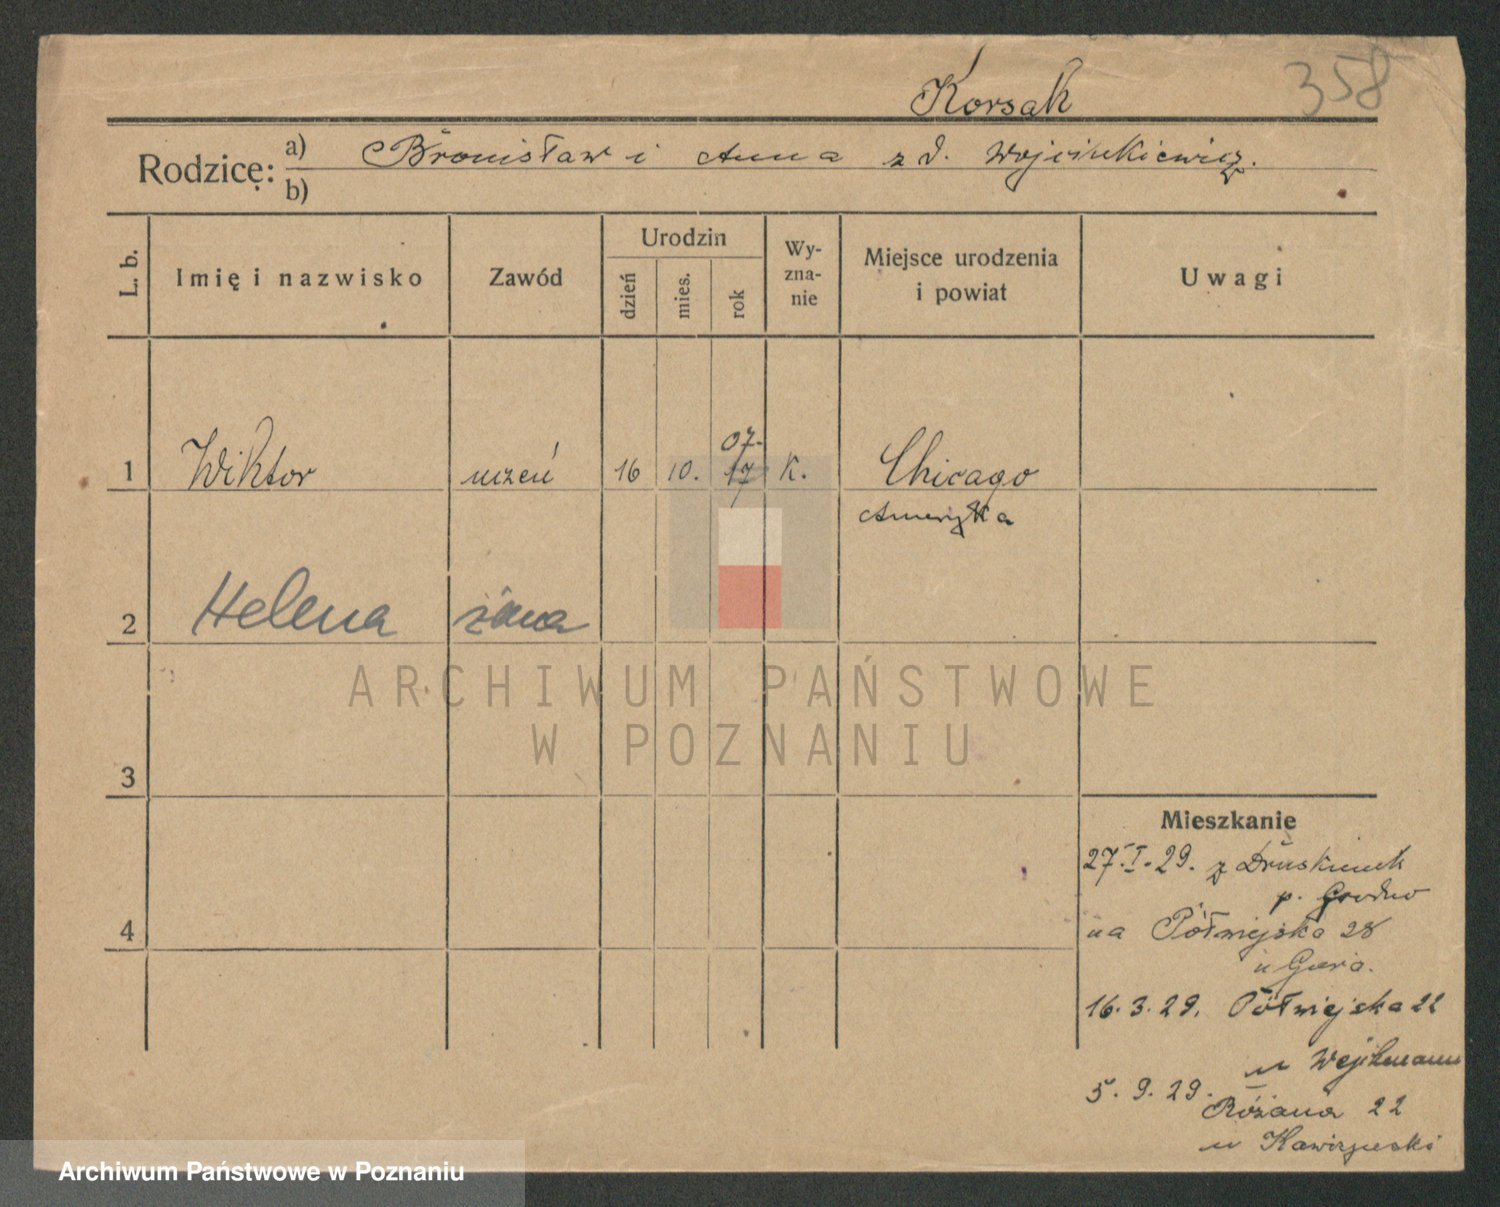 Korsak 358
Rodzice: a) Bronisław i Anna z d. Wojcinkiewicz.
b)
L. b. Imię i nazwisko Zawód Urodzin Wy-zna-nie Miejsce urodzenia i powiat Uwagi
dzień mies. rok
07.
1 Wiktor uczeń 16 10. 17 K. Chicago
Ameryka
2 Helena żona
ARCHIWUM PAŃSTWOWE
W POZNANIU
3
Mieszkanie
27.I.29. z Druskienik
p. Grodno
4
na Półwiejska 28
u Gara.
16.3.29. Półwiejska 22
u
5.9.29.
Różana 22
u
Archiwum Państwowe w Poznaniu